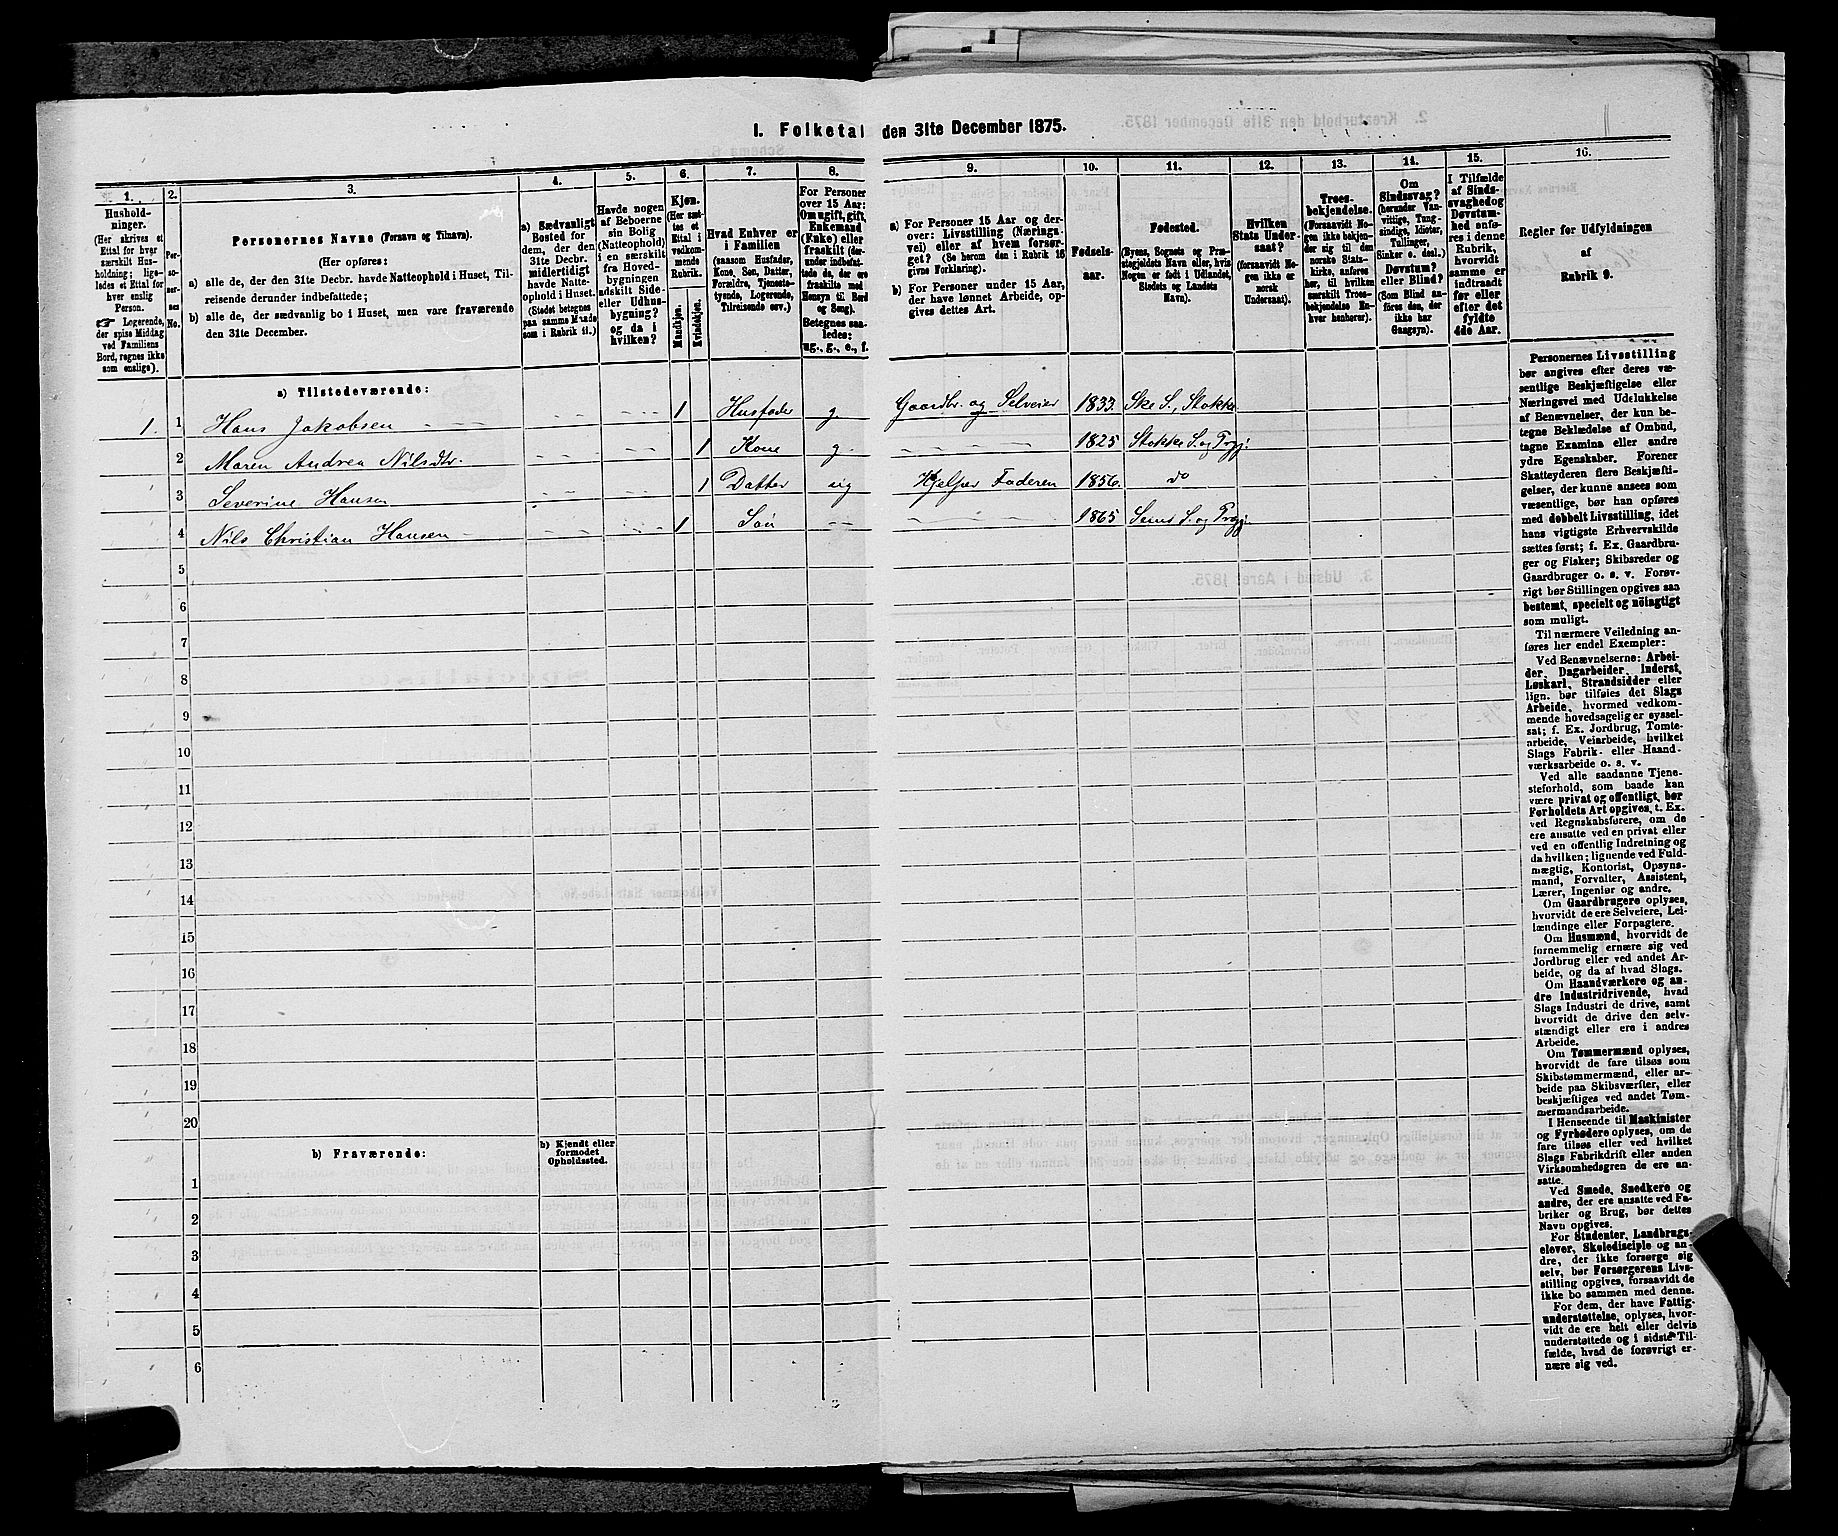 I. Folketal den 31te December 1875.
1. 2. 3. 4. 5. 6. 7. 8. 9. 10. 11. 12. 13. 14. 15. 16.
Hushold-
ninger.
(Her skrives et
Ettal for hver
særskilt Hus-
holdning; lige-
ledes et Ettal for
hver enslig
Person.
☞ Logerende,
der spise Middag
ved Familiens
Bord, regnes ikke
som enslige).
Per-
so-
ner-
nes
No.
Personernes Navne (Fornavn og Tilnavn).
(Her opføres:
a) alle de, der den 31te Decbr. havde Natteophold i Huset, Til-
reisende derunder indbefattede;
b) alle de, der sædvanlig bo i Huset, men vare fraværende
den 31te December.
a) Sædvanligt
Bosted for
dem, der den
31te Decbr.
midlertidigt
havde Natte-
ophold i Huset.
(Stedet betegnes
paa samme Maade
som i Rubrik 11.)
Havde nogen
af Beboerne
sin Bolig
(Natteophold)
i en særskilt
fra Hoved-
bygningen
adskilt Side-
eller Udhus-
bygning?
og da i
hvilken?
Kjøn.
(Her sæt-
tes et
Ettal i
vedkom-
mende
Rubrik.
Mandkjøn.
Kvindekjøn.
Hvad Enhver er
i Familien
(saasom Husfader,
Kone, Søn, Datter,
Forældre, Tjeneste-
tyende, Logerende,
Tilreisende osv.)
For Personer
over 15 Aar:
Om ugift, gift,
Enkemand
(Enke) eller
fraskilt (der-
under indbefat-
tede de, der ere
fraskilte med
Hensyn til Bord
og Seng).
Betegnes saa-
ledes:
ug., g., e., f.
a) For Personer 15 Aar og der-
over: Livsstilling (Nærings-
vei) eller af hvem forsør-
get? (Se herom den i Rubrik 16
givne Forklaring).
b) For Personer under 15 Aar,
der have lønnet Arbeide, op-
gives dettes Art.
Fødsels-
aar.
Fødested.
(Byens, Sognets og Præ-
stegjeldets Navn eller, hvis
Nogen er født i Udlandet,
Stedets og Landets
Navn).
Hvilken
Stats Under-
saat?
(forsaavidt No-
gen ikke er
norsk
Undersaat).
Troes-
bekjendelse.
(Forsaavidt No-
gen ikke bekjen-
der sig til den
norske Stats-
kirke, anføres
her, til hvilken
særskilt Troes-
bekjendelse En-
hver henhører).
Om
Sindssvag?
(herunder Van-
vittige, Tung-
sindige, Idioter,
Tullinger,
Sinker o. desl.)
Døvstum?
eller Blind?
(Som Blind an-
føres den, der
ikke har
Gangsyn).
I Tilfælde
af Sinds-
svaghed og
Døvstum-
hed anfø-
res i denne
Rubrik,
hvorvidt
samme er
indtraadt
før eller
efter det
fyldte
4de Aar.
Regler for Udfyldningen
af
Rubrik 9.
a) Tilstedeværende:
1. 1 Hans Jakobsen 1 Husfader g. Gaardbr. og Selveier 1833. Ske S., Stokke
2 Maren Andrea Nilsdtr. 1 Kone g. 1825 Stokke S. og Prgj.
3 Severine Hansen 1 Datter ug Hjelper Faderen 1856. do
4 Nils Christian Hansen 1 Søn 1865 Sems S. og Prgj.
5
6
7
8
9
10
11
12
13
14
15
16
17
18
19
20
b) Fraværende: b) Kjendt eller
formodet
Opholdssted.
1
2
3
4
5
6
Personernes Livsstilling
bør angives efter deres væ-
sentlige Beskjæftigelse eller
Næringsvei med Udelukkelse
af Benævnelser, der kun be-
tegne Beklædelse af Ombud,
tagne Examina eller andre
ydre Egenskaber. Forener
Skatteyderen flere Beskjæfti-
gelser, der kunne ansees som
væsentlige, bør han opføres
med dobbelt Livsstilling, idet
hans vigtigste Erhvervskilde
sættes først; f. Ex. Gaardbru-
ger og Fisker; Skibsreder og
Gaardbruger o. s. v. Forøv-
rigt bør Stillingen opgives saa
bestemt, specielt og nöiagtigt
som muligt.
Til nærmere Veiledning an-
føres her endel Exempler:
Ved Benævnelserne: Arbei-
der, Dagarbeider, Inderst,
Løskarl, Strandsidder eller
lign. bør tilføies det Slags
Arbeide, hvormed vedkom-
mende hovedsagelig er syssel-
sat; f. Ex. Jordbrug, Tomte-
arbeide, Veiarbeide, hvilket
Slags Fabrik- eller Haand-
værksarbeide o. s. v.
Ved alle saadanne Tjene-
steforhold, som baade kan
være privat og offentligt, bør
Forholdets Art opgives, t. Ex.
ved Regnskabsførere, om de
ere ansatte ved en privat eller
ved en offentlig Indretning og
da hvilken; lignende ved Fuld-
mægtig, Kontorist, Opsyns-
mand, Forvalter, Assistent,
Lærer, Ingeniør og andre.
Om Gaardbrugere oplyses,
hvorvidt de ere Selveiere, Lei-
lændinge eller Forpagtere.
Om Husmænd, hvorvidt de
fornemmelig ernære sig ved
Jordbrug eller ved andet Ar-
beide, og da af hvad Slags.
Om Haandværkere og an-
dre Industridrivende, hvad
Slags Industri de drive, samt
hvorvidt de drive den selv-
stændigt eller ere i andres
Arbeide.
Om Tømmermænd oplyses,
hvorvidt de fare tilsøs som
Skibstømmermænd, eller ar-
beide paa Skibsværfter, eller
beskjæftiges ved andet Tøm-
mermandsarbeide.
I Henseende til Maskinister
og Fyrbødere oplyses, om de
fare tilsøs eller ved hvilket
Slags Fabrikdrift eller anden
Virksomhedsgren de ere an-
satte.
Ved Smede, Snedkere og
andre, der ere ansatte ved Fa-
briker og Brug, bør dettes
Navn opgives.
For Studenter, Landbrugs-
elever, Skoledisciple og an-
dre, der ikke forsørge sig
selv, bør Forsørgerens Livs-
stilling opgives, forsaavidt de
ikke bo sammen med denne.
For dem, der have Fattig-
understøttelse, oplyses, hvor-
vidt de ere helt eller delvis
understøttede og i sidste Til-
fælde, hvad de forøvrigt er-
nære sig ved.